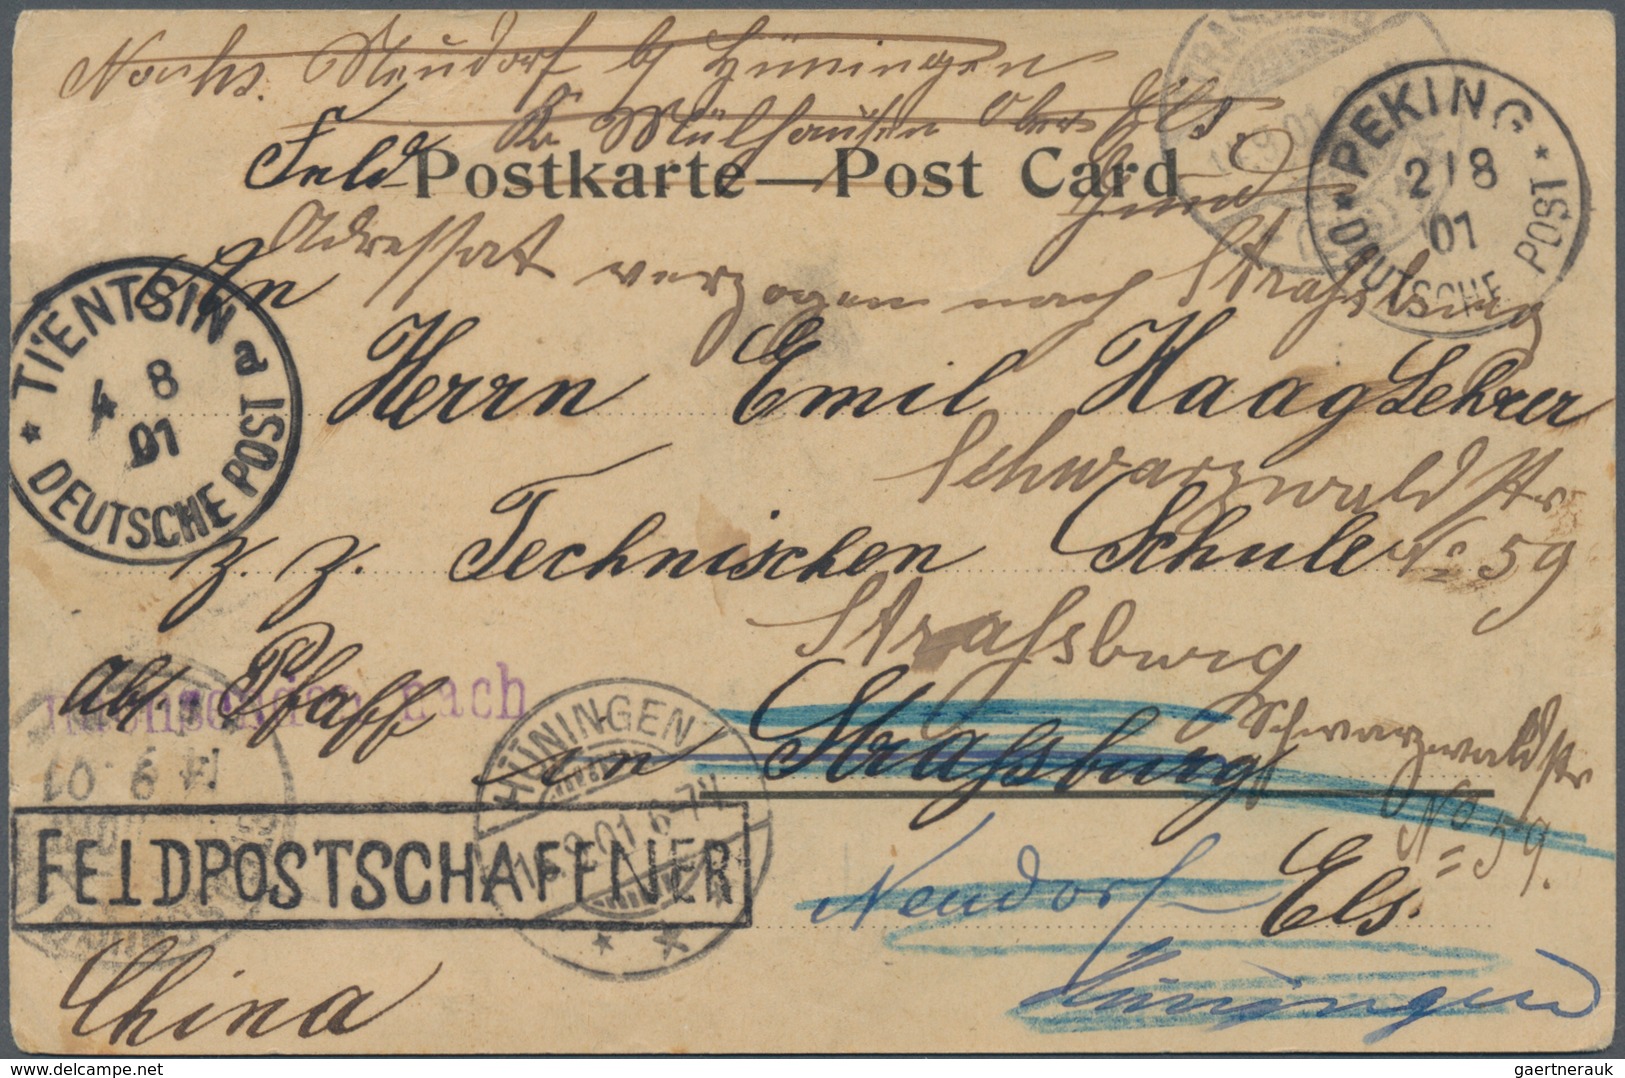 Nachs. Neudorf b/ Hüningen
Kr. Mülhausen Ober Els.
Feld Postkarte—Post Card
Adressat verzogen nach Strassburg
PEKING
2/8
01
DEUTSCHE POST
An
TIENTSIN a
4 8
01
DEUTSCHE POST
Herrn Emil Haag Lehrer
Schwarzwald Str.
z. z. Technischen Schule No 59
Strassburg
Abs. Pfaff
nach
in Strassburg
Schwarzwaldstr
No 59.
HÜNINGEN
9.01 6-7N
14 9 01
FELDPOSTSCHAFFNER
Neudorf Els.
Hüningen
China
gaertnerauk